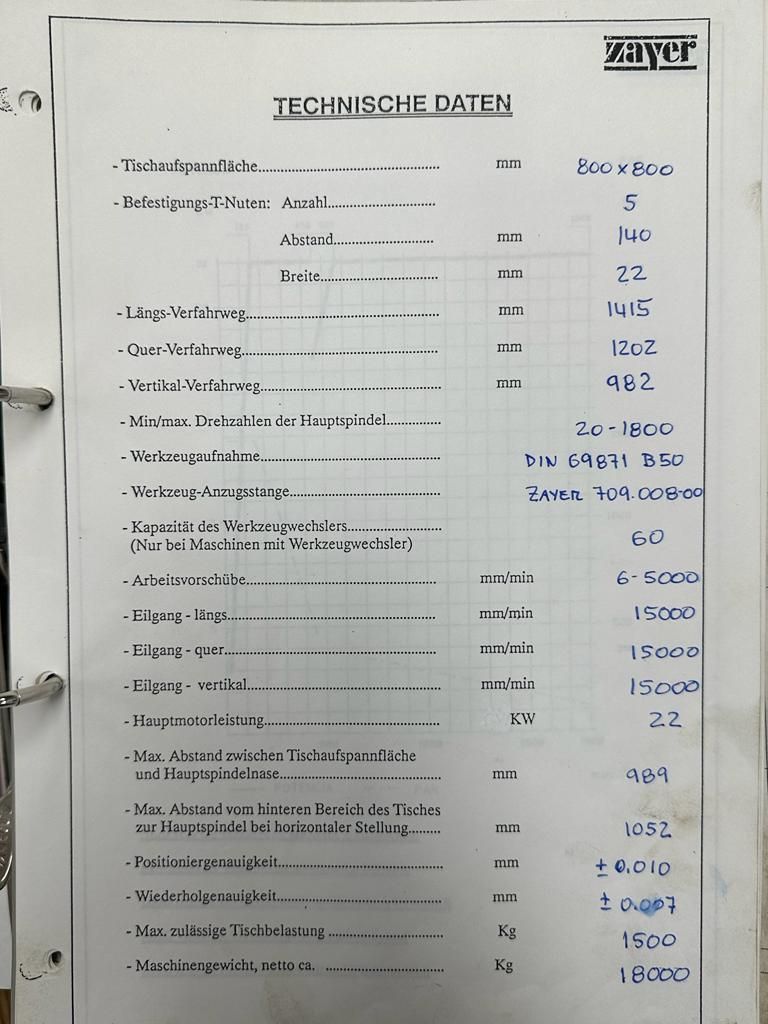 zayer
TECHNISCHE DATEN
- Tischaufspannfläche.......... mm 800 x 800
- Befestigungs-T-Nuten: Anzahl.......... 5
Abstand.......... mm 140
Breite.......... mm 22
- Längs-Verfahrweg.......... mm 1415
- Quer-Verfahrweg.......... mm 1202
- Vertikal-Verfahrweg.......... mm 982
- Min/max. Drehzahlen der Hauptspindel.......... 20-1800
- Werkzeugaufnahme.......... DIN 69871 B50
- Werkzeug-Anzugsstange.......... ZAYER 709.008-00
- Kapazität des Werkzeugwechslers..........
(Nur bei Maschinen mit Werkzeugwechsler) 60
- Arbeitsvorschübe.......... mm/min 6-5000
- Eilgang - längs.......... mm/min 15000
- Eilgang - quer.......... mm/min 15000
- Eilgang - vertikal.......... mm/min 15000
- Hauptmotorleistung.......... KW 22
- Max. Abstand zwischen Tischaufspannfläche
und Hauptspindelnase.......... mm 989
- Max. Abstand vom hinteren Bereich des Tisches
zur Hauptspindel bei horizontaler Stellung......... mm 1052
- Positioniergenauigkeit.......... mm ± 0.010
- Wiederholgenauigkeit.......... mm ± 0.007
- Max. zulässige Tischbelastung .......... Kg 1500
- Maschinengewicht, netto ca. .......... Kg 18000